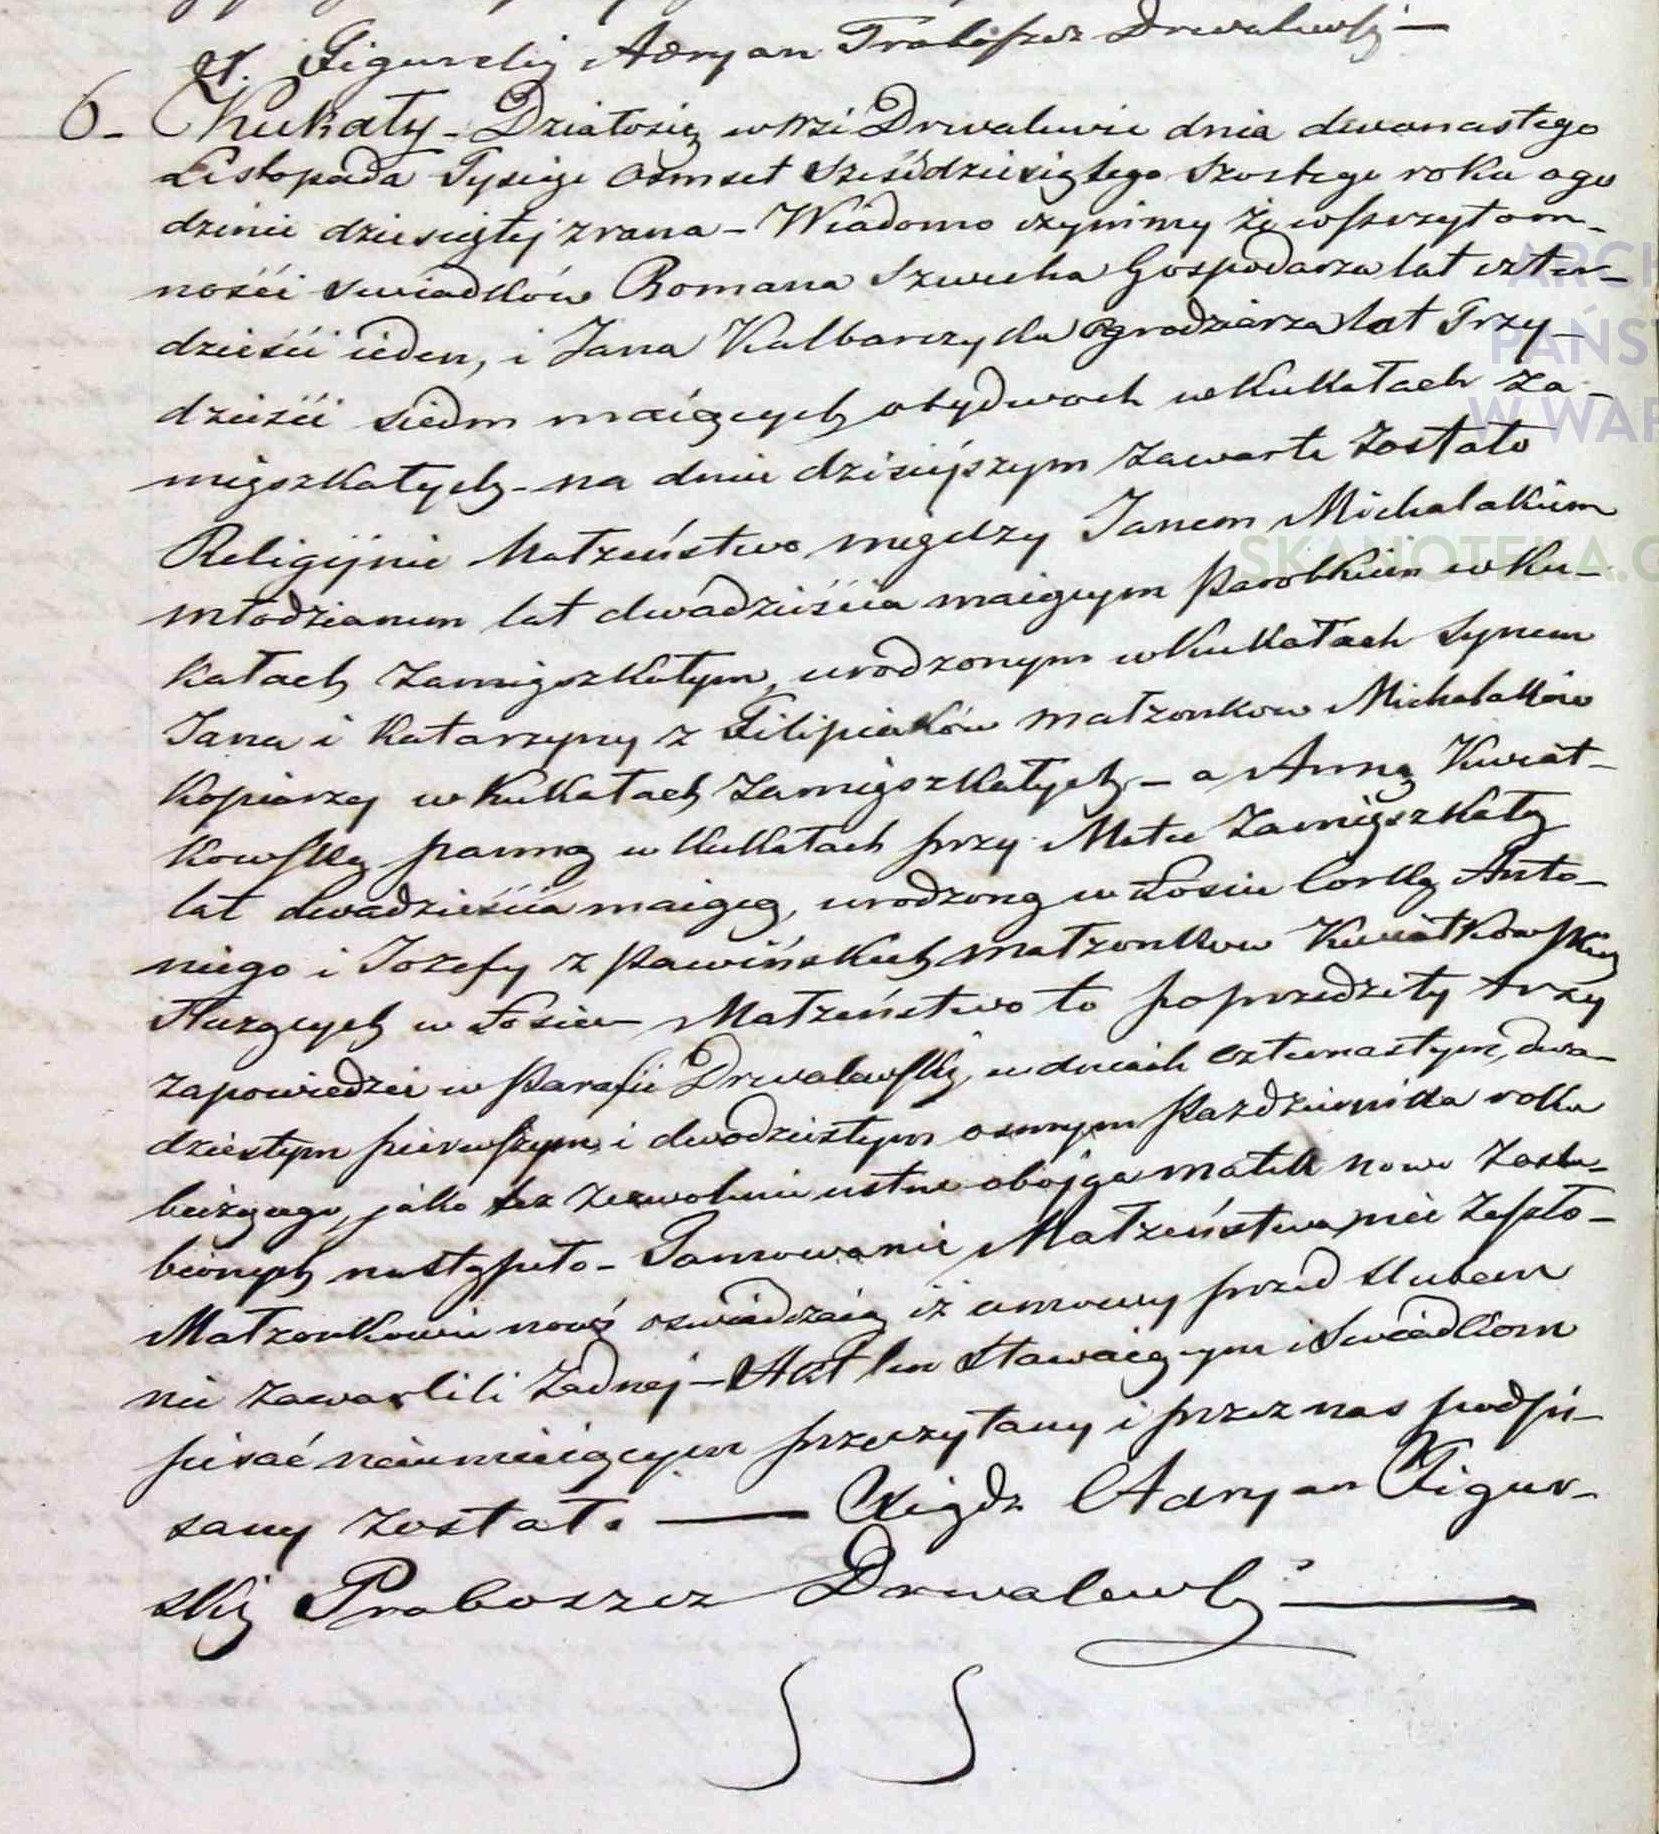 X. Figurski Adryan Proboszcz Drwalewski —
6 - Kukały - Działosię w Wsi Drwalewie dnia dwonastego
Listopada Tysiąc Ośmset Sześćdziesiątego Szostego roku ogo
dzinie dziesiątej zrana - Wiadomo czynimy że w przytom-
ności swiadków Romana Szwecha Gospodarza lat czter-
dzieści ieden, i Jana Kalbarczyka Ogrodziarza lat Trzy-
dzieści siedm maiących obydwoch w Kukałach za-
mięszkałych - na dniu dzisieyszym zawarte zostało
Religijnie Małzeństwo między Janem Michalakiem
młodzianem lat dwadzieścia maiącym Parobkiem w Ku-
kałach zamięszkałym, urodzonym w Kukałach synem
Jana i Katarzyny z Filipiaków małzonkow Michalaków
Kopiarzy w Kukałach zamięszkałych - a Anną Kwiat-
kowską panną w Kukałach przy Matce zamięszkałą
lat dwadzieścia maiącą, urodzoną w Łosiu Corką Anto-
niego i Jozefy z Pawińskich małzonkow Kwiatkowskich
Służących w Łosiu - Małzeństwo to poprzedziły trzy
zapowiedzi w Parafii Drwalewskiej w dniach czternastym, dwa-
dziestym pierwszym i dwodziestym osmym Pazdziernika roku
bieżącego, jako tez zezwolenie ustne obojga matek nowo zaślu-
bionych nastąpiło - Tamowanie Małzeństwa nie zaszło -
Małzonkowie nowi oswiadczaią iż umowy przed slubem
nie zawarlili żadnej - Akt ten stawaiącym i Swiadkom
pisać nieumieiącym przeczytany i przez nas podpi-
sany został. — Xiądz Adryan Figur-
ski Proboszcz Drwalewski —